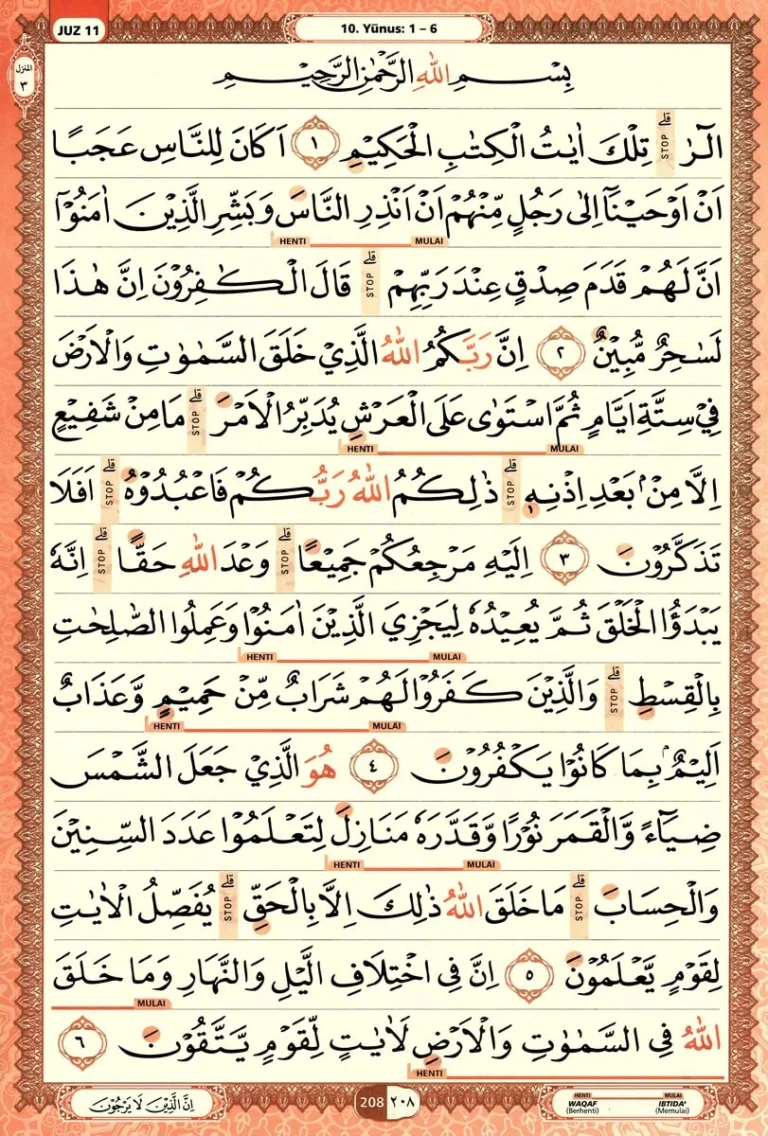 JUZ 11
10. Yūnus: 1 – 6
المنزل ٣
بِسْمِ اللّٰهِ الرَّحْمٰنِ الرَّحِيْمِ
الۤرٰ ۗ STOP تِلْكَ اٰيٰتُ الْكِتٰبِ الْحَكِيْمِ ١ اَكَانَ لِلنَّاسِ عَجَبًا
اَنْ اَوْحَيْنَآ اِلٰى رَجُلٍ مِّنْهُمْ اَنْ اَنْذِرِ النَّاسَ وَبَشِّرِ الَّذِيْنَ اٰمَنُوْٓا
HENTI MULAI
اَنَّ لَهُمْ قَدَمَ صِدْقٍ عِنْدَ رَبِّهِمْ ۗ STOP قَالَ الْكٰفِرُوْنَ اِنَّ هٰذَا
لَسٰحِرٌ مُّبِيْنٌ ٢ اِنَّ رَبَّكُمُ اللّٰهُ الَّذِيْ خَلَقَ السَّمٰوٰتِ وَالْاَرْضَ
فِيْ سِتَّةِ اَيَّامٍ ثُمَّ اسْتَوٰى عَلَى الْعَرْشِ يُدَبِّرُ الْاَمْرَ ۗ STOP مَا مِنْ شَفِيْعٍ
HENTI MULAI
اِلَّا مِنْۢ بَعْدِ اِذْنِهٖ ۗ STOP ذٰلِكُمُ اللّٰهُ رَبُّكُمْ فَاعْبُدُوْهُ ۗ STOP اَفَلَا
تَذَكَّرُوْنَ ٣ اِلَيْهِ مَرْجِعُكُمْ جَمِيْعًا ۗ STOP وَعْدَ اللّٰهِ حَقًّا ۗ STOP اِنَّهٗ
يَبْدَؤُا الْخَلْقَ ثُمَّ يُعِيْدُهٗ لِيَجْزِيَ الَّذِيْنَ اٰمَنُوْا وَعَمِلُوا الصّٰلِحٰتِ
HENTI MULAI
بِالْقِسْطِ ۗ STOP وَالَّذِيْنَ كَفَرُوْا لَهُمْ شَرَابٌ مِّنْ حَمِيْمٍ وَّعَذَابٌ
HENTI MULAI
اَلِيْمٌ ۢبِمَا كَانُوْا يَكْفُرُوْنَ ٤ هُوَ الَّذِيْ جَعَلَ الشَّمْسَ
ضِيَاۤءً وَّالْقَمَرَ نُوْرًا وَّقَدَّرَهٗ مَنَازِلَ لِتَعْلَمُوْا عَدَدَ السِّنِيْنَ
HENTI MULAI
وَالْحِسَابَ ۗ STOP مَا خَلَقَ اللّٰهُ ذٰلِكَ اِلَّا بِالْحَقِّ ۗ STOP يُفَصِّلُ الْاٰيٰتِ
لِقَوْمٍ يَّعْلَمُوْنَ ٥ اِنَّ فِى اخْتِلَافِ الَّيْلِ وَالنَّهَارِ وَمَا خَلَقَ
MULAI
اللّٰهُ فِى السَّمٰوٰتِ وَالْاَرْضِ لَاٰيٰتٍ لِّقَوْمٍ يَّتَّقُوْنَ ٦
HENTI
اِنَّ الَّذِيْنَ لَا يَرْجُوْنَ
208 ٢٠٨
HENTI MULAI
WAQAF IBTIDA'
(Berhenti) (Memulai)